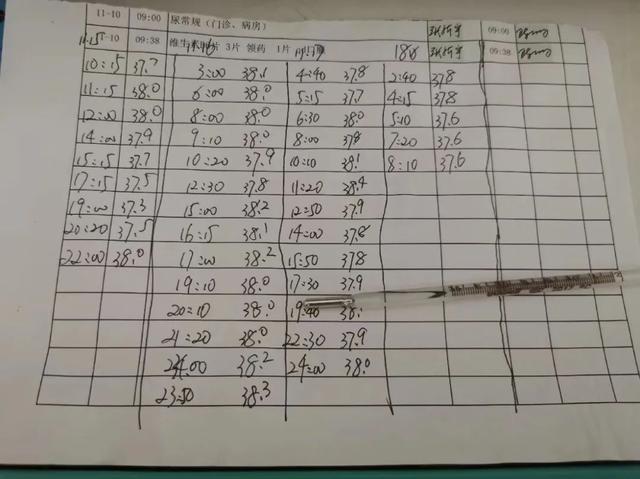 11-10 09:00 尿常规（门诊、病房） 09:00
11-15 -10 09:38 3片 领药 1片 18日 09:38
10:15 37.7 3:00 38.1 4:40 37.8 2:40 37.8
11:15 38.0 6:00 38.0 5:15 37.7 4:15 37.8
12:00 38.0 8:00 38.0 6:30 38.0 5:10 37.6
14:00 37.9 9:10 38.0 8:00 37.8 7:20 37.6
15:15 37.7 10:20 37.9 10:10 38.1 8:10 37.6
17:15 37.5 12:30 37.8 11:20 38.4
19:00 37.3 15:00 38.2 12:50 37.9
20:20 37.5 16:15 38.1 14:00 37.8
22:00 38.0 17:00 38.2 15:50 37.8
19:10 38.0 17:30 37.9
20:10 38.0 19:40
21:20 38.0 22:30 37.9
38.2 24:00 38.0
23:50 38.3